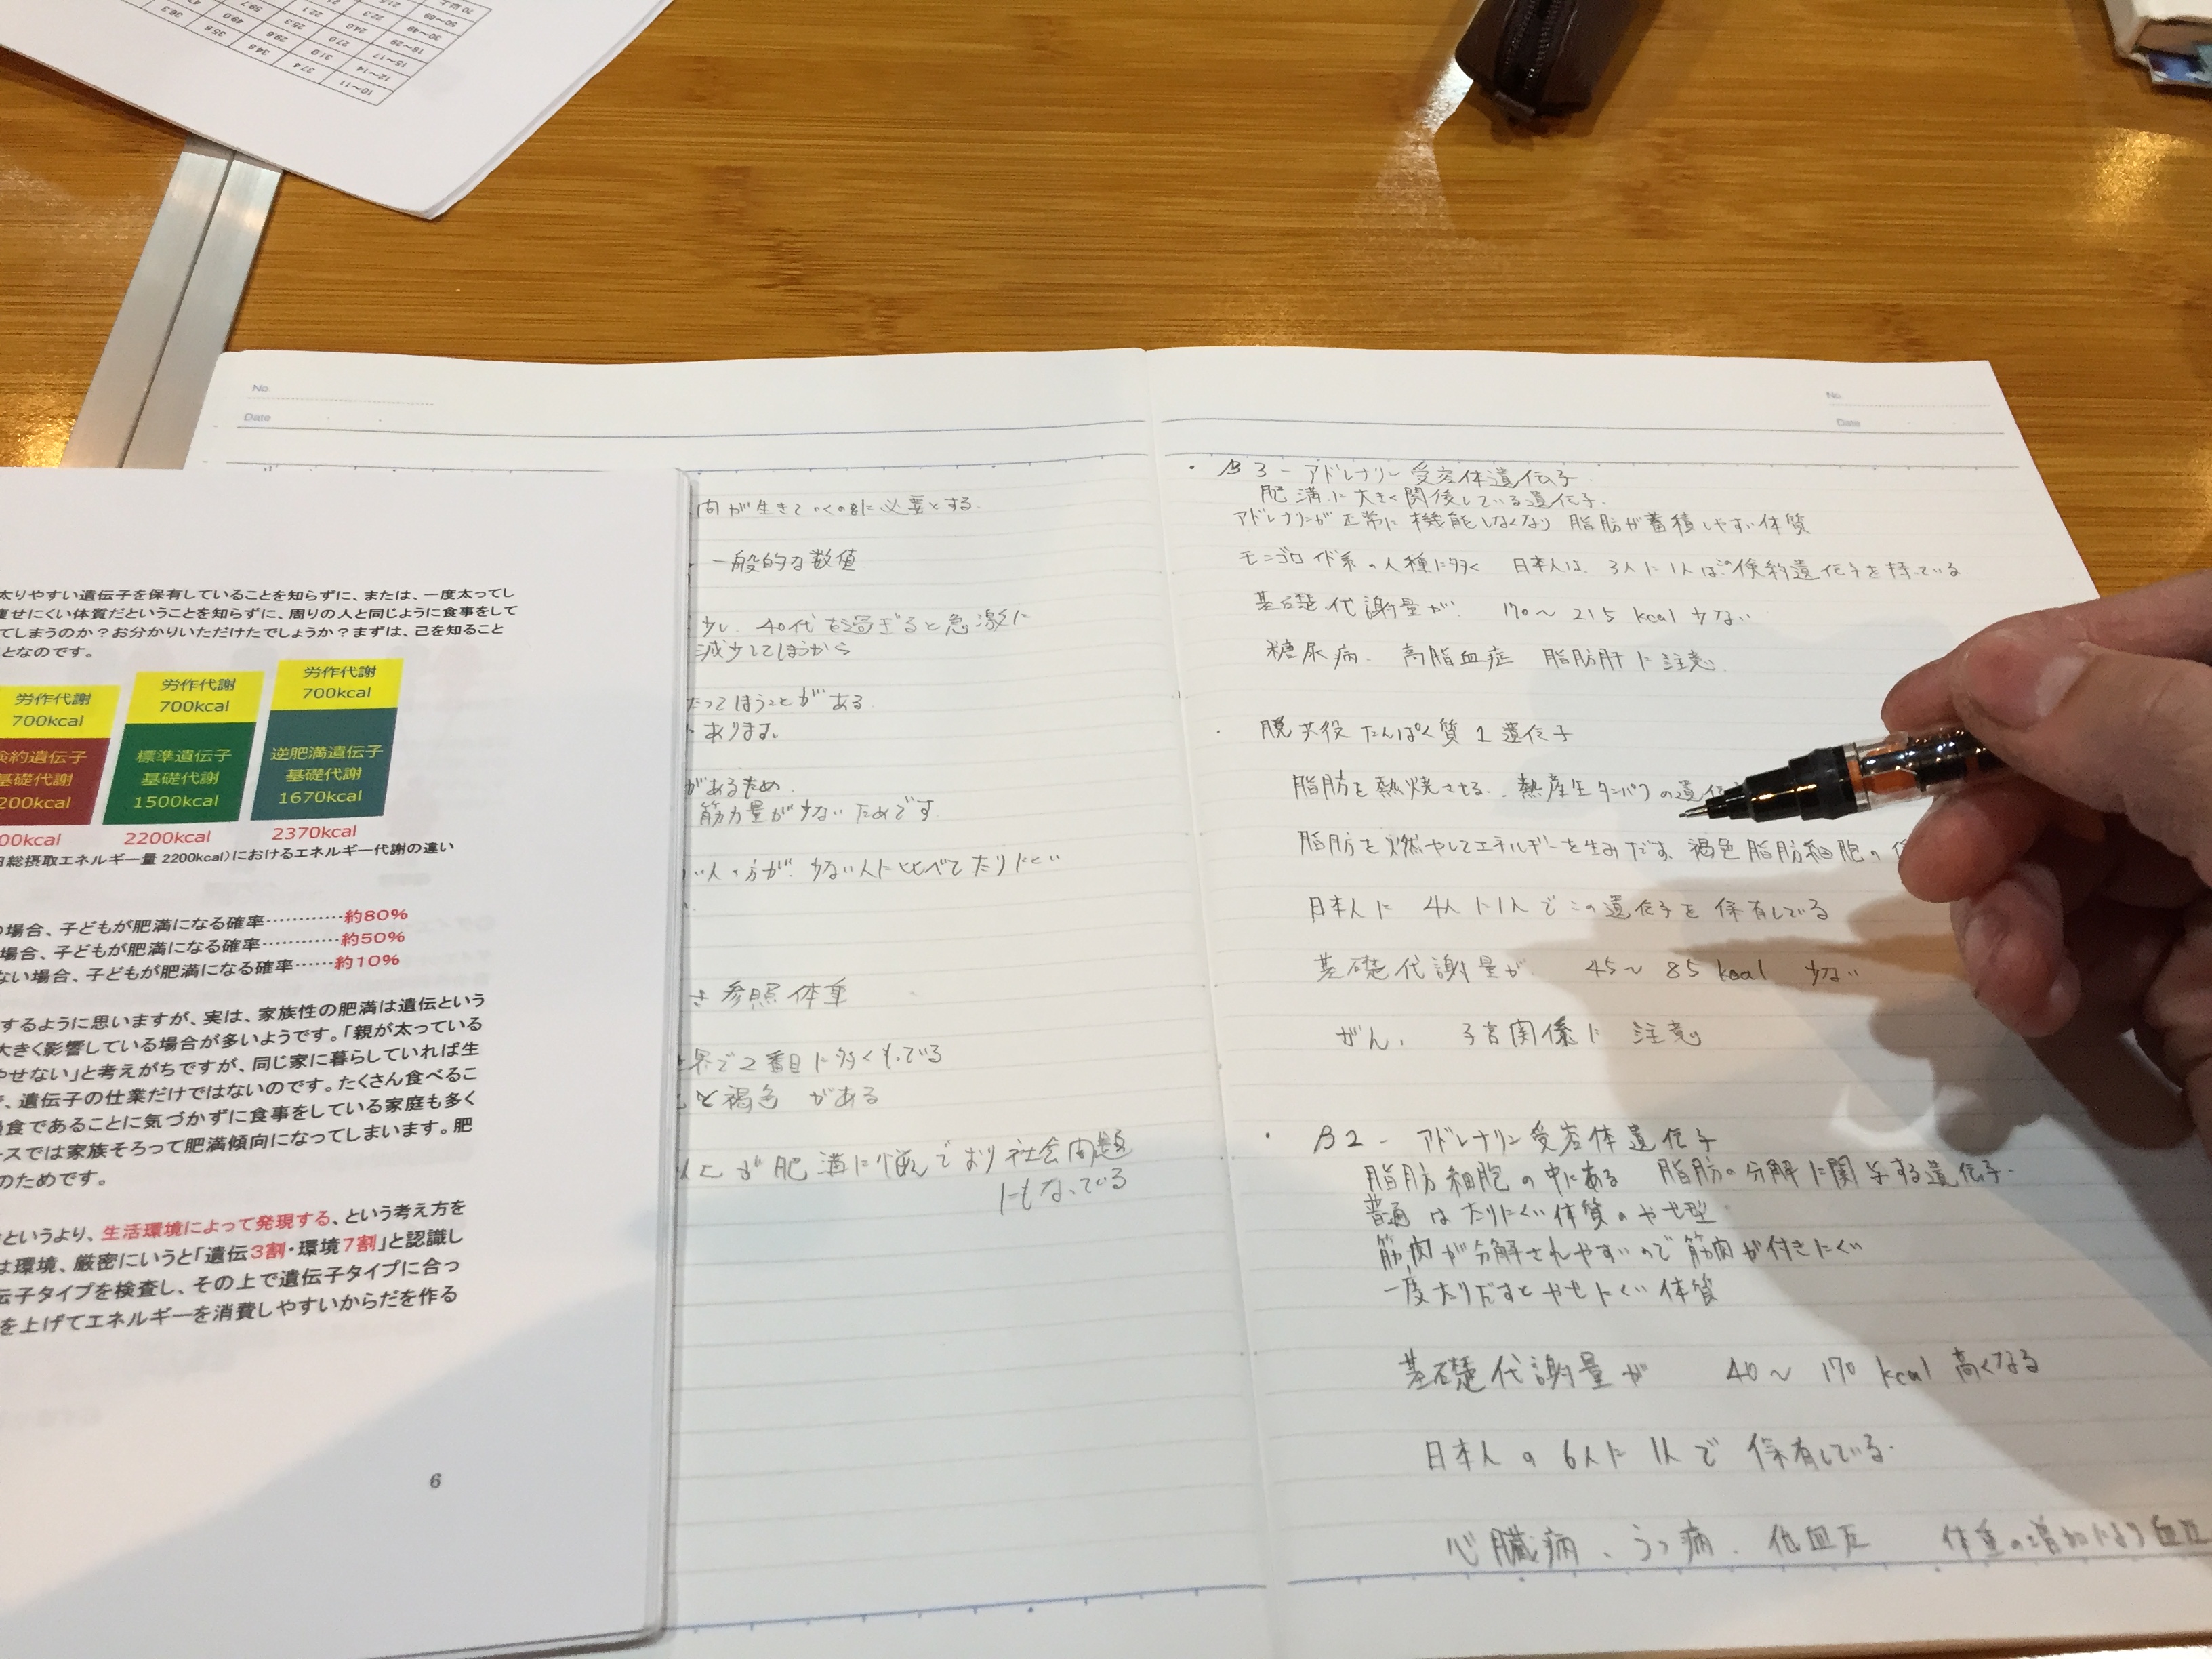 70以上
50~69
30~49
18~29
15~17
12~14
10~11
22.1
22.3
24.0
27.0
31.0
37.4
25.3
29.6
34.8
49.0
35.6
36.3
No.
Date
No.
Date
太りやすい遺伝子を保有していることを知らずに、または、一度太ってし
痩せにくい体質だということを知らずに、周りの人と同じように食事をして
てしまうのか?お分かりいただけたでしょうか?まずは、己を知ること
となのです。
労作代謝
700kcal
労作代謝
700kcal
労作代謝
700kcal
倹約遺伝子
基礎代謝
200kcal
標準遺伝子
基礎代謝
1500kcal
逆肥満遺伝子
基礎代謝
1670kcal
00kcal
2200kcal
2370kcal
総摂取エネルギー量 2200kcal)におけるエネルギー代謝の違い
場合、子どもが肥満になる確率…………約80%
場合、子どもが肥満になる確率…………約50%
ない場合、子どもが肥満になる確率……約10%
するように思いますが、実は、家族性の肥満は遺伝という
大きく影響している場合が多いようです。「親が太っている
やせない」と考えがちですが、同じ家に暮らしていれば生
、遺伝子の仕業だけではないのです。たくさん食べるこ
食であることに気づかずに食事をしている家庭も多く
ースでは家族そろって肥満傾向になってしまいます。肥
のためです。
というより、生活環境によって発現する、という考え方を
は環境、厳密にいうと「遺伝3割・環境7割」と認識し
伝子タイプを検査し、その上で遺伝子タイプに合っ
を上げてエネルギーを消費しやすいからだを作る
6
間が生きていくのに必要とする.
一般的な数値
少し、40代を過ぎると急激に
減少してしまうから
たってしまうことがある
あります。
があるため.
筋力量が少ないためです
い人の方が、少ない人に比べて太りにくい
さ 参照体重
界で2番目に多くもっている
と褐色 がある
以上が肥満に悩んでおり社会問題
にもなっている
・β3-アドレナリン受容体遺伝子
肥満に大きく関係している遺伝子.
アドレナリンが正常に機能しなくなり 脂肪が蓄積しやすい体質
モンゴロイド系の人種に多く 日本人は、3人に1人はこの倹約遺伝子を持っている
基礎代謝量が 170~215 kcal 少ない
糖尿病、高脂血症 脂肪肝に注意
・脱共役たんぱく質1遺伝子
脂肪を熱焼させる、熱産生タンパクの遺伝
脂肪を燃やしてエネルギーを生みだす、褐色脂肪細胞の
日本人に 4人に1人でこの遺伝子を保有している
基礎代謝量が 45~85 kcal 少ない
がん、 子宮関係に 注意
・β2-アドレナリン受容体遺伝子
脂肪細胞の中にある 脂肪の分解に関与する遺伝子.
普通は太りにくい体質のやせ型
筋肉が分解されやすいので筋肉が付きにくい
一度太りだすとやせにくい体質
基礎代謝量が 40~170 kcal 高くなる
日本人の6人に1人で保有している.
心臓病、うつ病、低血圧 体重の増加により血圧